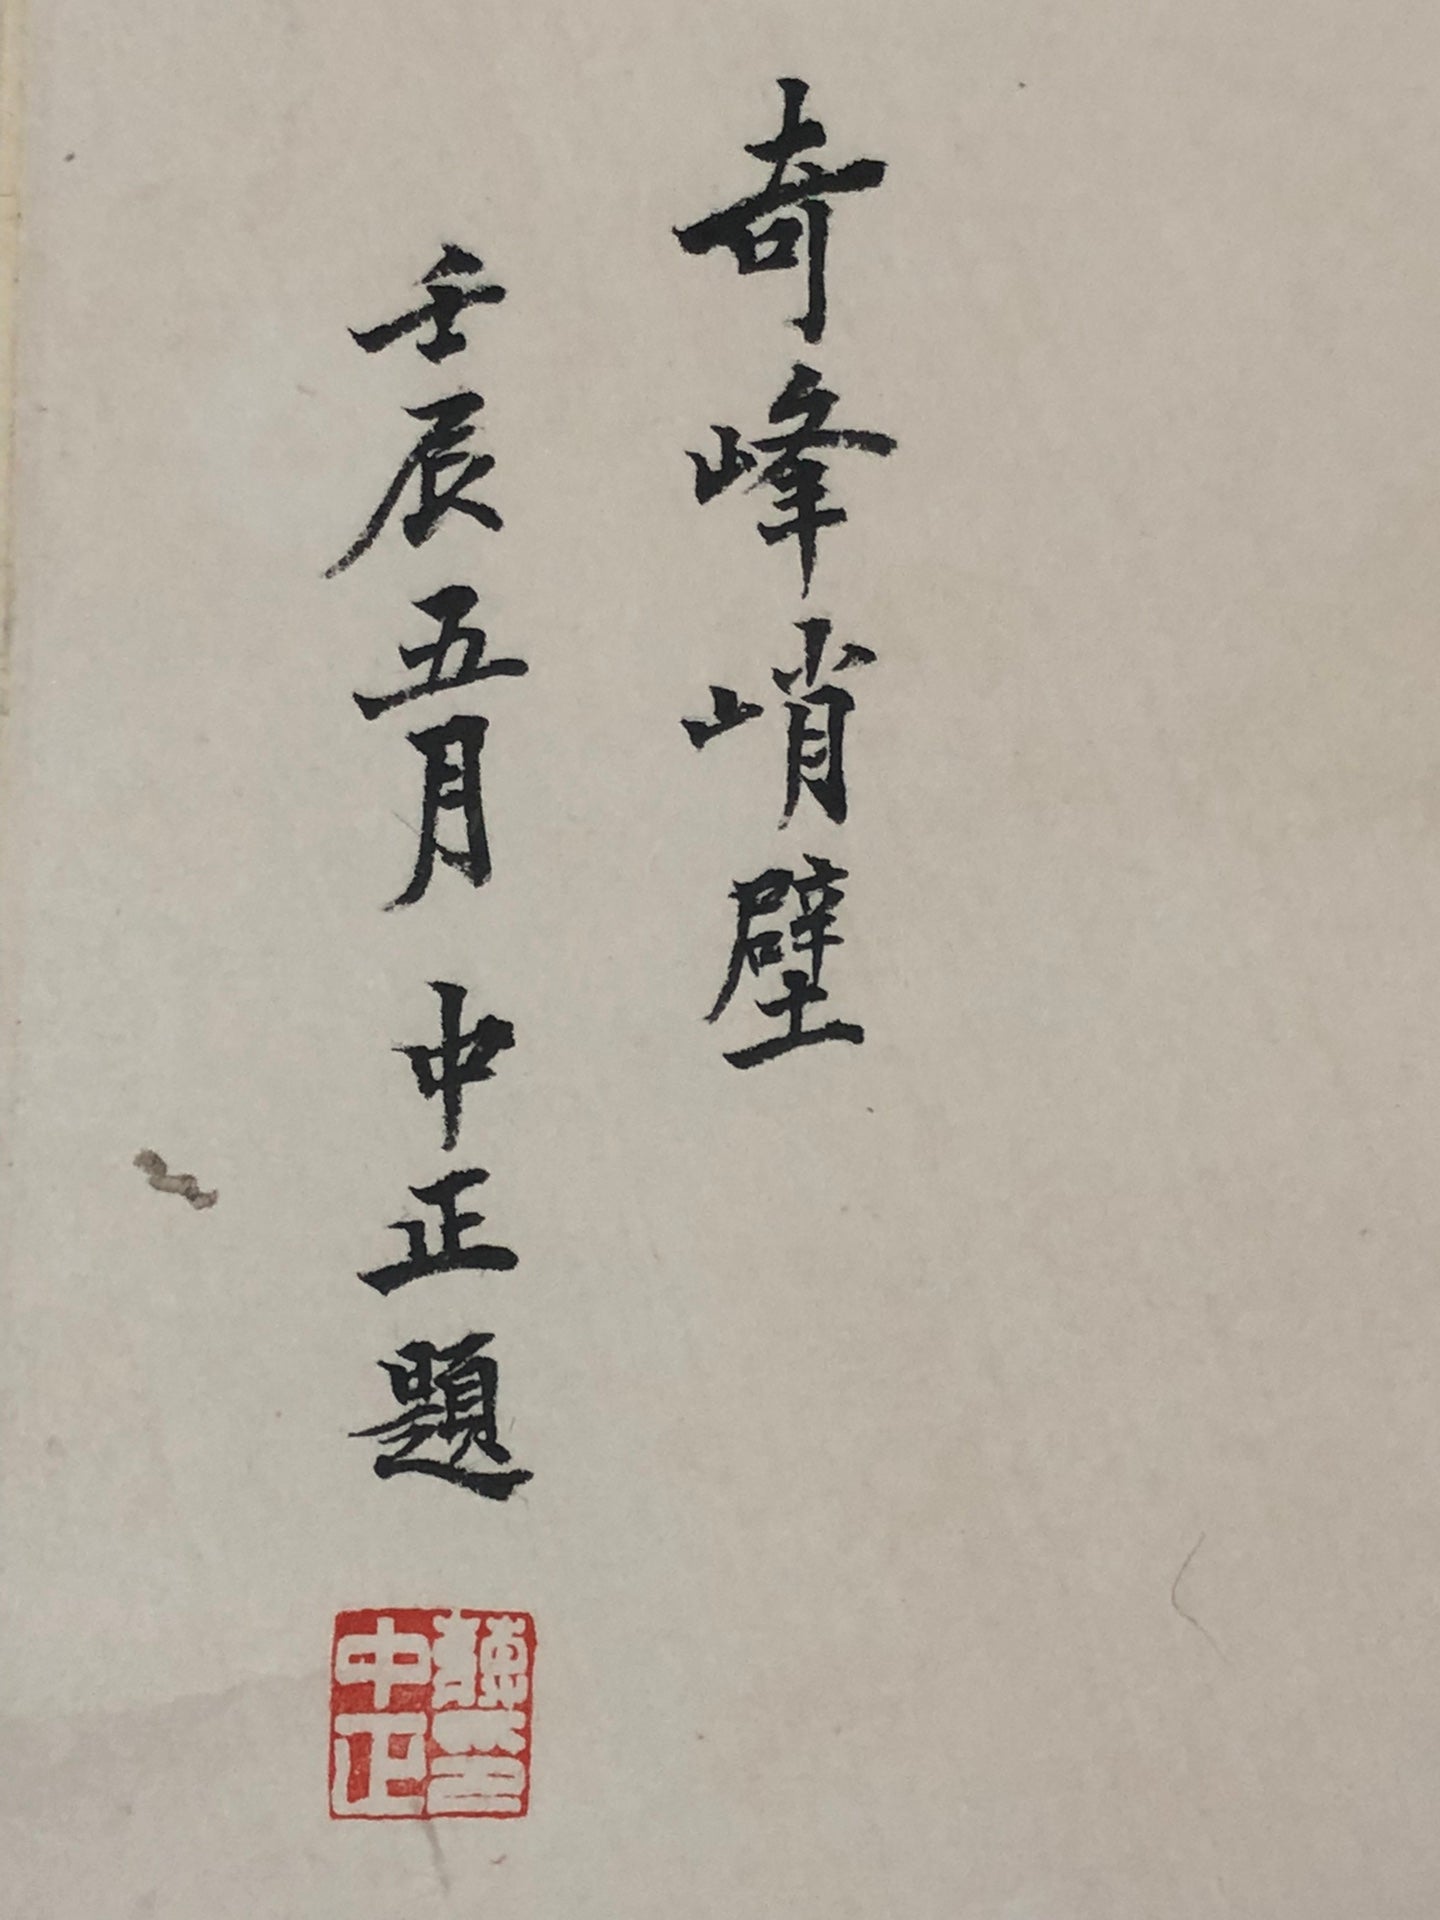 奇峰峭壁
壬辰五月 中正題
中正